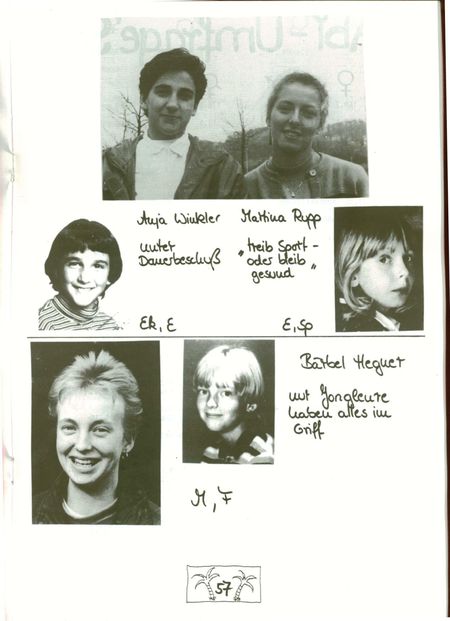 Abi-Umfrage
Anja Winkler
unter
Dauerbeschuß
Ek, E
Martina Rupp
"treib Sport -
oder bleib
gesund"
E, Sp
Bärbel Hegner
nur Jongleure
haben alles im
Griff
M, F
57